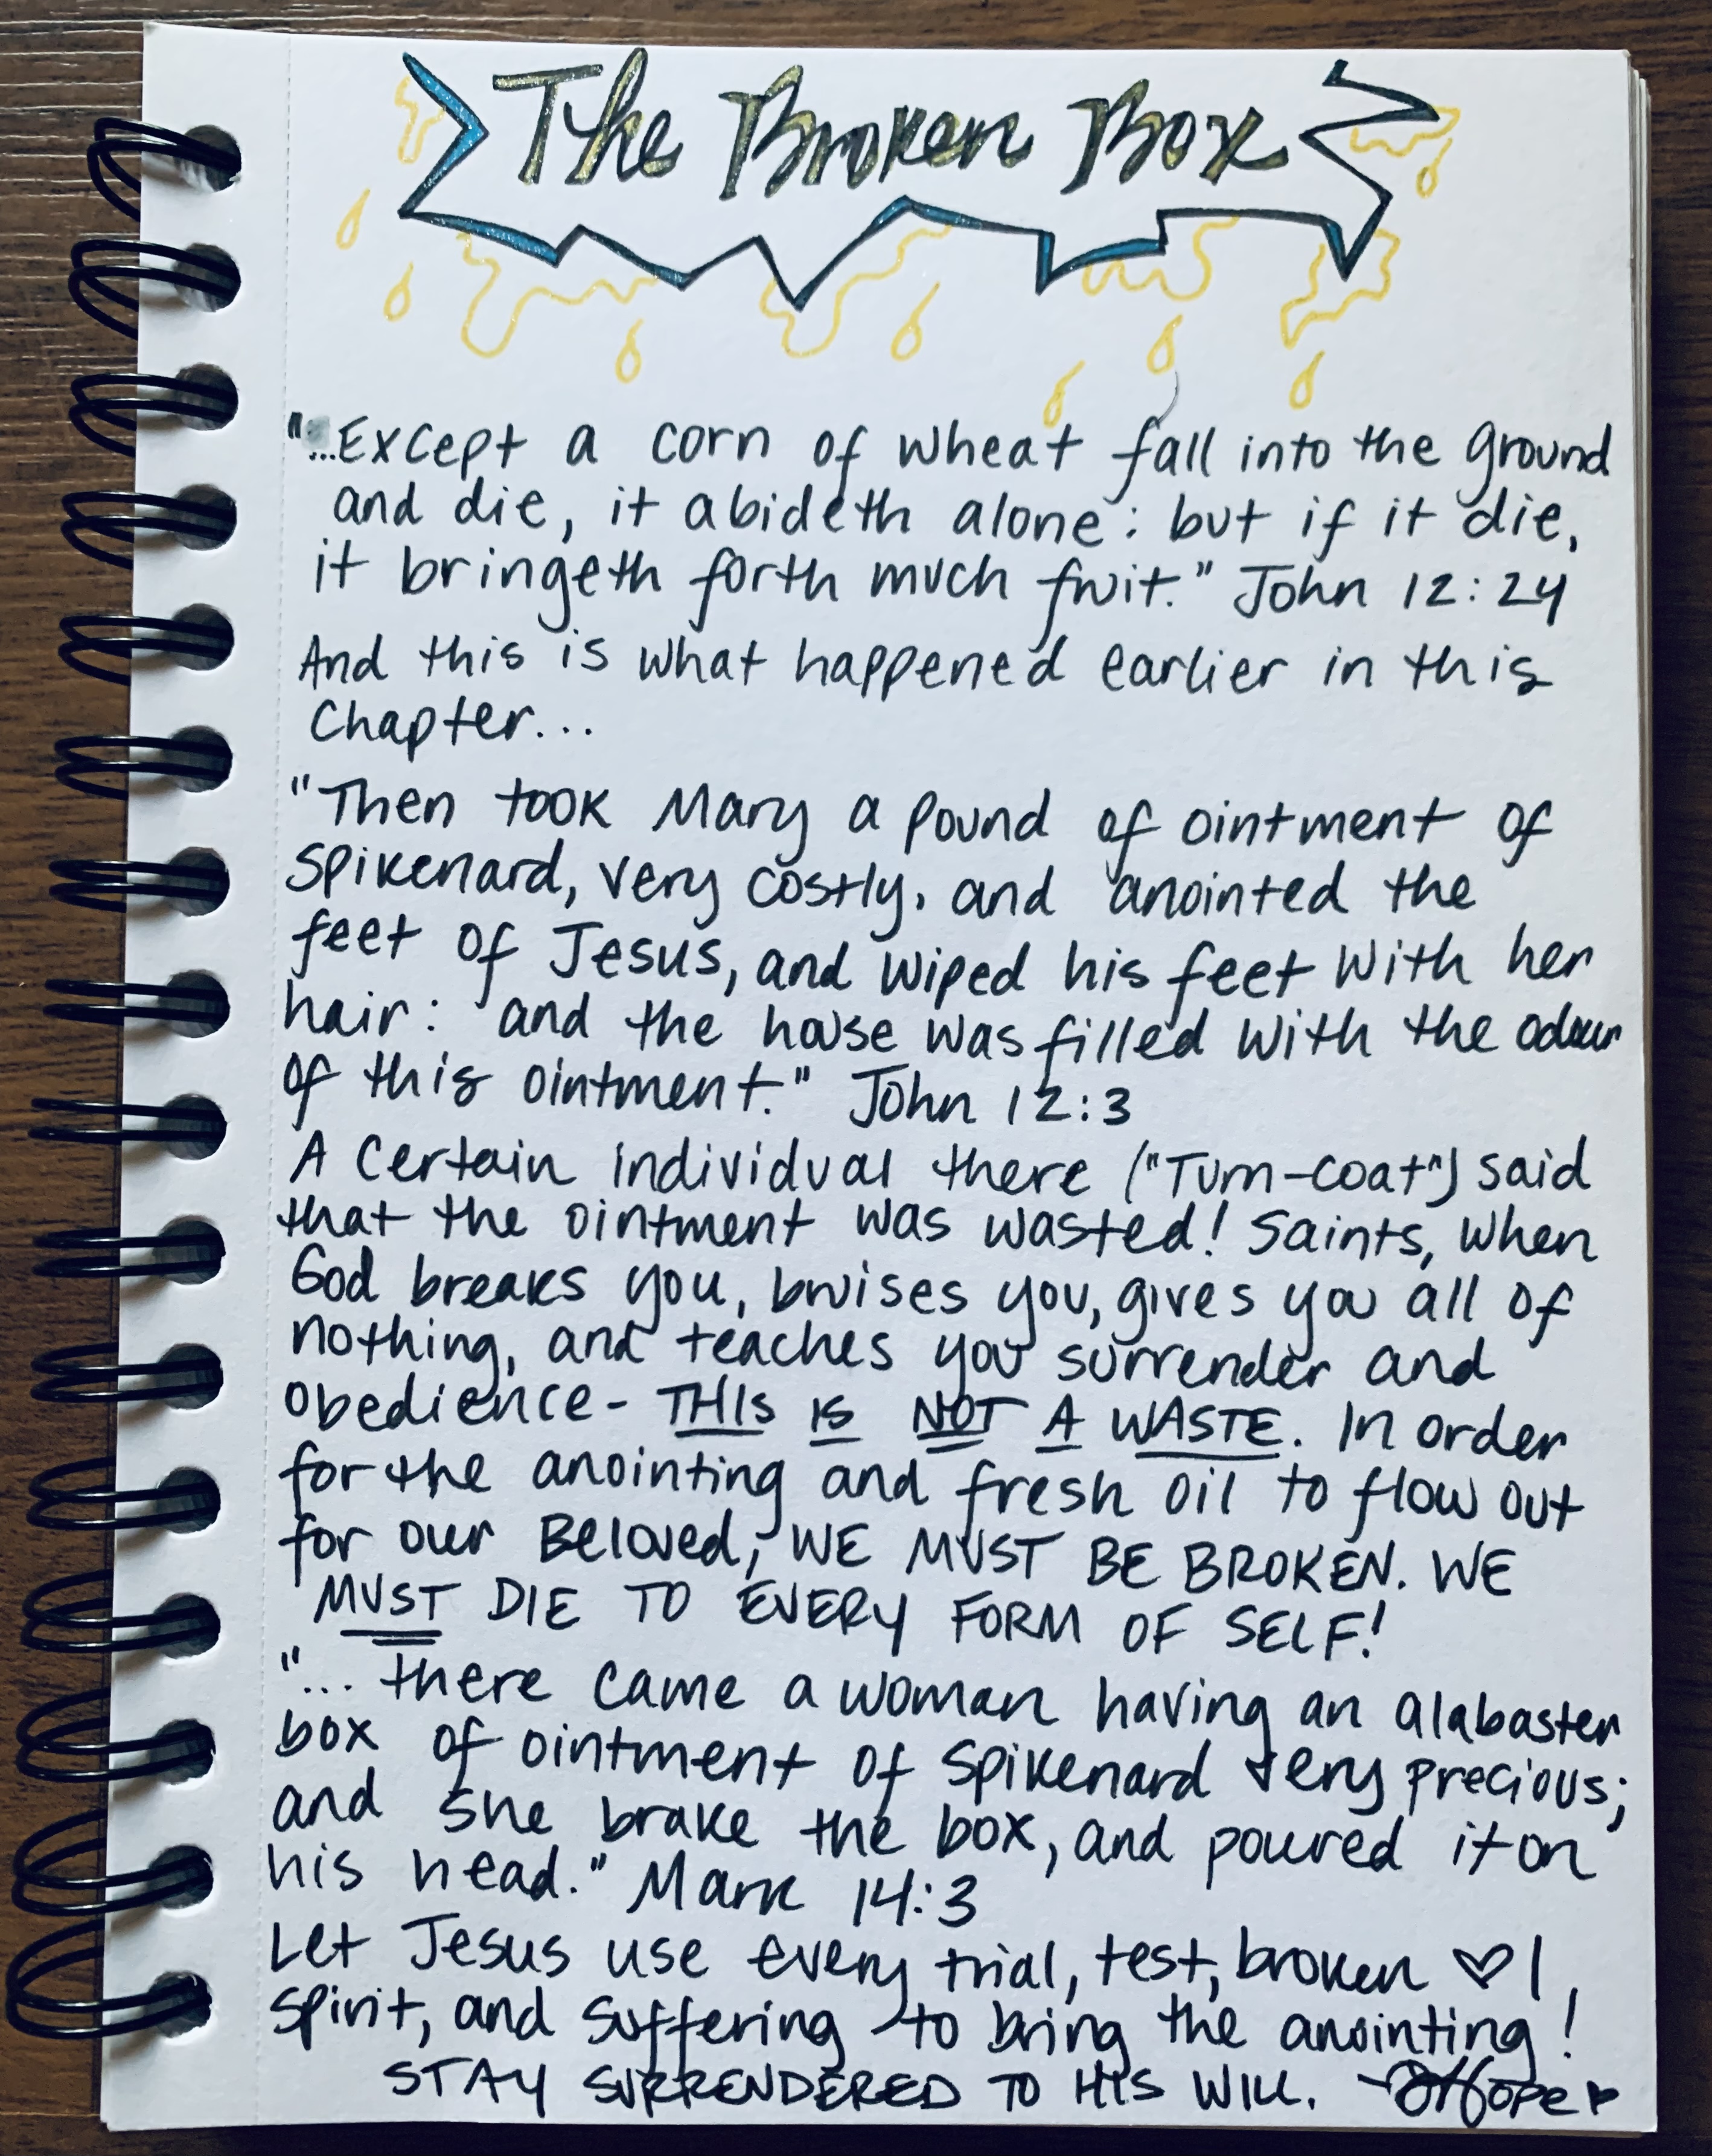 The Broken Box
"...Except a corn of wheat fall into the ground
and die, it abideth alone: but if it die,
it bringeth forth much fruit." John 12:24
And this is what happened earlier in this
Chapter...
"Then took Mary a pound of ointment of
Spikenard, very costly, and anointed the
feet of Jesus, and wiped his feet with her
hair: and the house was filled with the odour
of this ointment." John 12:3
A Certain individual there ("Turn-coat") said
that the ointment was wasted! Saints, when
God breaks you, bruises you, gives you all of
nothing, and teaches you surrender and
obedience- THIS IS NOT A WASTE. In order
for the anointing and fresh oil to flow out
for our Beloved, WE MUST BE BROKEN. WE
MUST DIE TO EVERY FORM OF SELF!
"... there came a woman having an alabaster
box of ointment of Spikenard very precious;
and she brake the box, and poured it on
his head." Mark 14:3
Let Jesus use every trial, test, broken ♡/
Spirit, and suffering to bring the anointing!
STAY SURRENDERED TO HIS WILL.